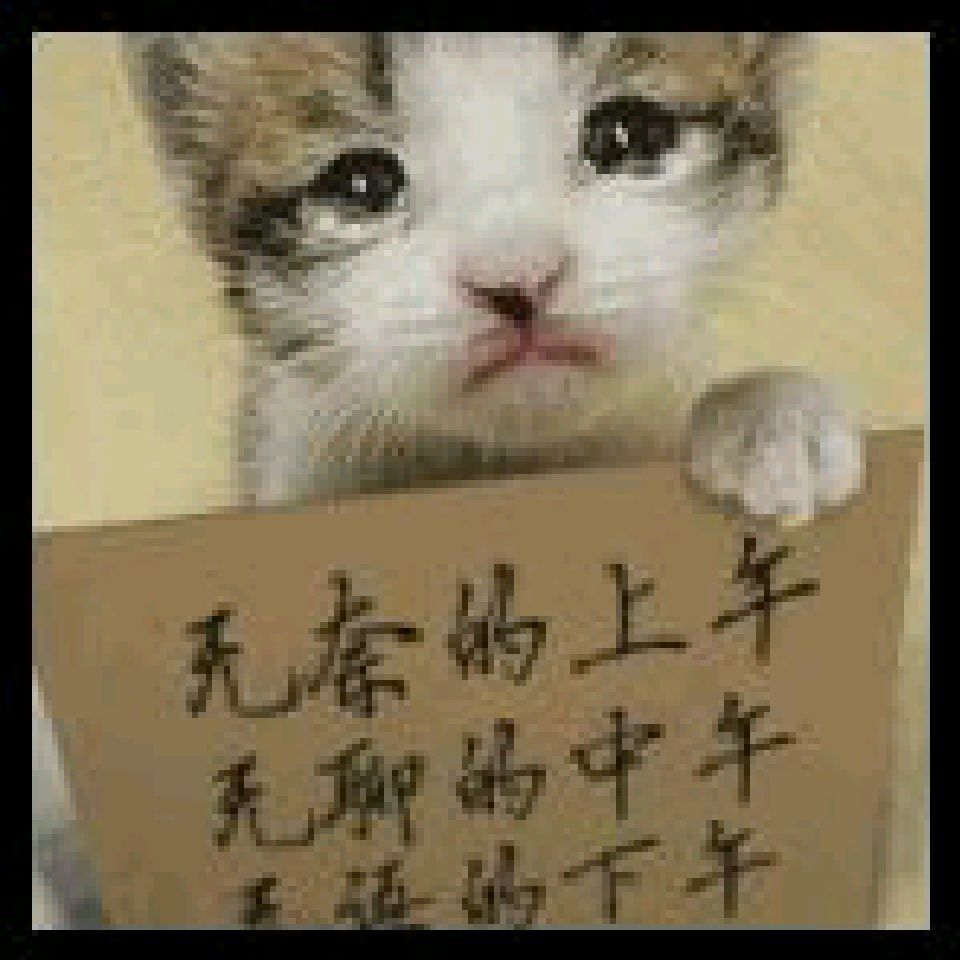 无奈的上午
无聊的中午
无语的下午